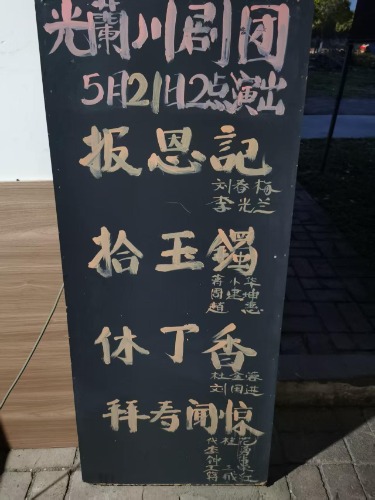 光蘭川剧团
5月21日2点演出
报恩記
刘春梅
李光兰
拾玉镯
蒋小华
周建坤
趙惠
休丁香
杜金源
刘国进
拜寿闻惊